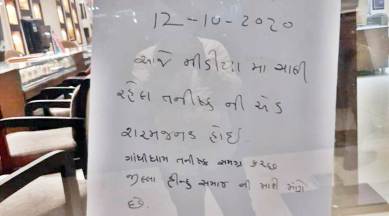 12-10-2020
આજે મીડીયા મા આવી
રહેલ તનીષ્ક ની એડ
શરમજનક હોઈ
ગાંધીધામ તનીષ્ક સમગ્ર કચ્છ
જીલ્લા હીન્દુ સમાજ ની માફી માંગે
છે.